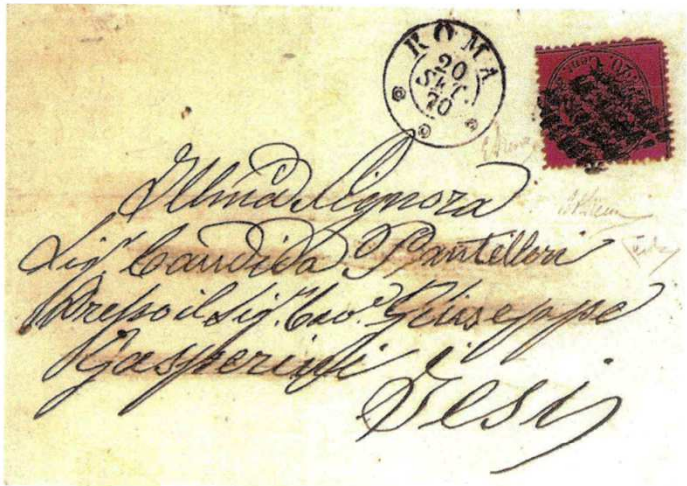 ROMA
20
SET.
70
Ill.ma Signora
Sig.ra Candida Pantellori
Presso il Sig. Cav.e Giuseppe
Gasperini
Jesi